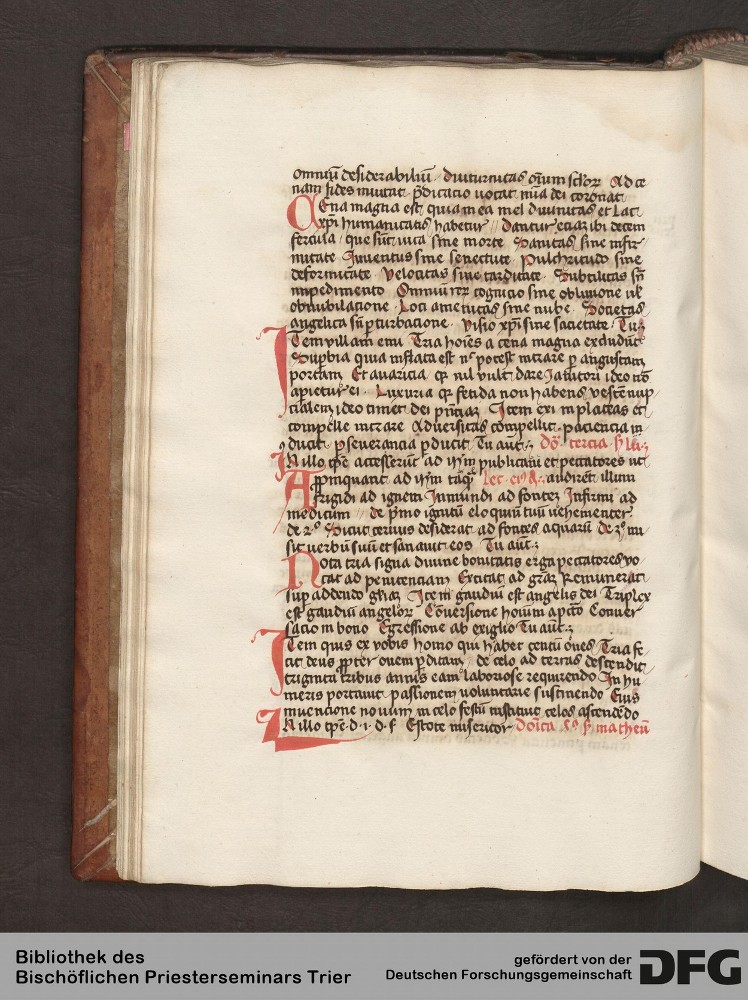 omniū desiderabiliū diuturnitas oīum sctōꝝ Ad ce
nam fides inuitat p̄dicacio uocat mīa dei coronat
Cena magna est quia in ea mel diuinitas et lac
xp̄i humanitatis habetur Dantur eciam ibi decem
fercula que sūt uita sine morte Sanitas sine infir
mitate Juuentus sine senectute Pulchritudo sine
deformitate Velocitas sine tarditate Subtilitas sn̄
impedimento Omniū reꝝ cognicio sine obliuione ul
obnubilacione Loci amenitas sine nube Societas
angelica sn̄ pturbacione Visio xp̄i sine sacietate Tu
Item villam emi Tria hoīes a cena magna excludūt
Supbia quia inflata est nō potest intrare p angustam
portam Et auaricia qꝫ nil vult dare Janitori ideo nō
apietur ei Luxuria qꝫ fetida non habens vestē nup
cialem ideo timet dei pn̄ciam Item exi in plateas et
compelle intrare Aduersitas compellit paciencia in
ducit pseuerancia pducit Tu aūt Dō tercia
In illo tp̄e accesserūt ad ihm publicani et peccatores ut
Appinquant ad ihm audirēt illum
frigidi ad ignem Inmundi ad fontes Infirmi ad
medicum de pmo ignitū eloquiū tuū uehementer
de 2º Sicut ceruus desiderat ad fontes aquarū de 3º mi
sit uerbū suū et sanauit eos Tu aūt
Nota tria signa diuine bonitatis erga peccatores vo
cat ad penitenciam Excitat ad grām Remunerat
supaddendo glīam Item gaudiū est angelis dei Triplex
est gaudiū angeloꝝ Cōuersione hoīum a pctō Conuer
sacio in bono Egressione ab exiglio Tu aūt
Item quis ex vobis homo qui habet centū oues Tria fe
cit deus ppter ouem pditam de celo ad terras descendit
triginta tribus annis eam laboriose requirendo In hu
meris portauit passionem voluntarie sustinendo Eius
inuencione nouum in celo festū instituit celos ascendēdo
In illo tp̄e d i d s Estote misericor Domīca matheū
Bibliothek des
Bischöflichen Priesterseminars Trier
gefördert von der
Deutschen Forschungsgemeinschaft
DFG